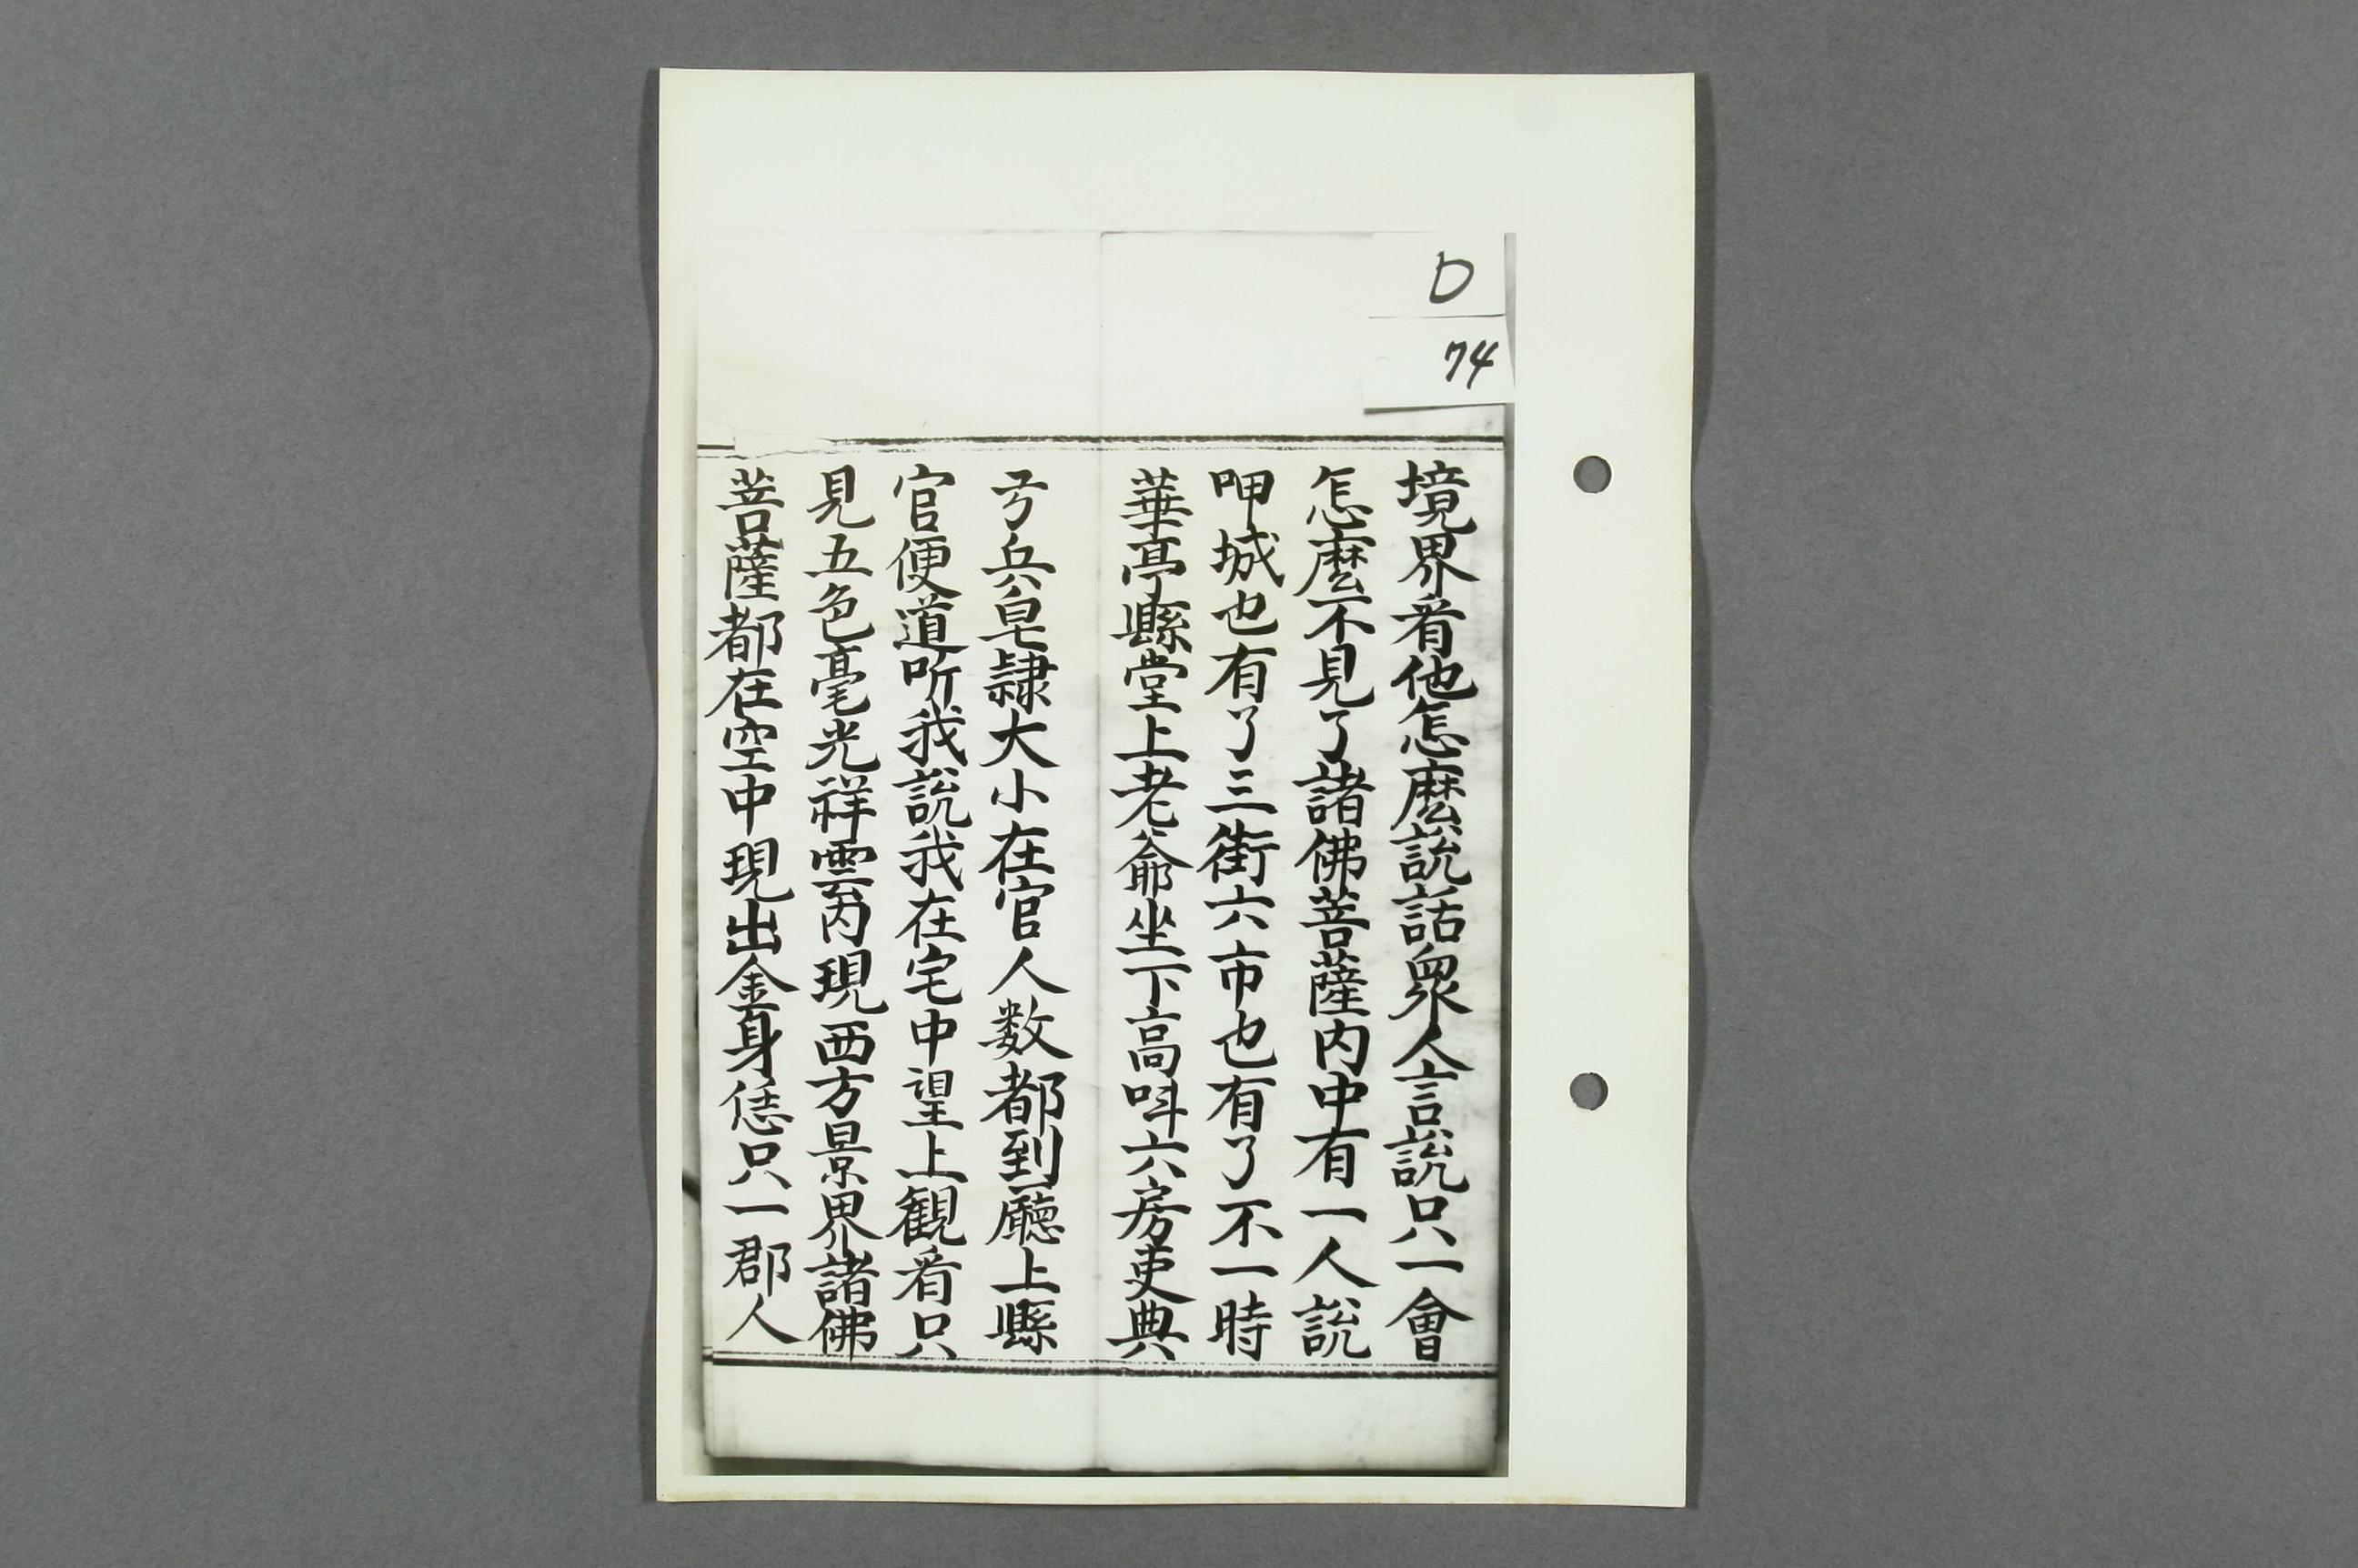 D
74
境界看他怎麽說話衆人言說只一會
怎麽不見了諸佛菩薩内中有一人說
呷城也有了三街六市也有了不一時
華亭縣堂上老爺坐下高呌六房吏典
兵皂隷大小在官人数都到廳上縣
官便道听我說我在宅中望上観看只
見五色毫光祥雲内現西方景界諸佛
菩薩都在空中現出金身恁只一郡人